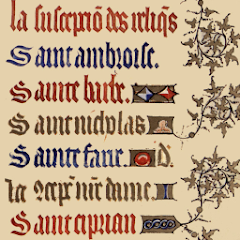 la suscepcō des reliq̄s
Saint ambroise.
Sainte barbe.
Saint nicholas
Sainte fare. d.
la 9cepc̄ nr̄e dame.
Saint ciprian